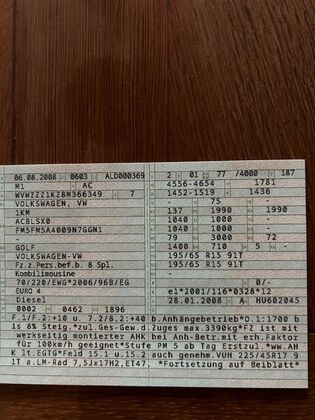 06.08.2008 0603 ALD000369 2 01 77 /4000 187
M1 AC 4556-4654 1781
WVWZZZ1KZ8M366349 7 1452-1519 1436
VOLKSWAGEN, VW 75
1KM 137 1990 1990
ACBLSX0 1040 1000 -
FM5FM5A4009N7GGN1 1040 1000 -
- 79 3000 72
GOLF 1400 710 5 -
VOLKSWAGEN-VW 195/65 R15 91T
Fz.z.Pers.bef.b. 8 Spl. 195/65 R15 91T
Kombilimousine -
70/220/EWG*2006/96B/EG 0/-
EURO 4 e1*2001/116*0328*12
Diesel 28.01.2008 A HU602045
0002 0462 1896
F.1/F.2:+10 u. 7.2/8.2:+40 b.Anhängebetrieb*O.1:1700 b
is 8% Steig.*zul.Ges-Gew.d.Zuges max.3390kg*FZ ist mit
werkseitig montierter AHK bei Anh-Betr.mit erh.Faktor
für 100km/h geeignet*Stufe PM 5 ab Tag Erstzul.*ww.AH
K lt.EGTG*Feld 15.1 u.15.2 auch genehm.VUH 225/45R17 9
1T a.LM-Rad 7,5Jx17H2,ET47, *Fortsetzung auf Beiblatt*